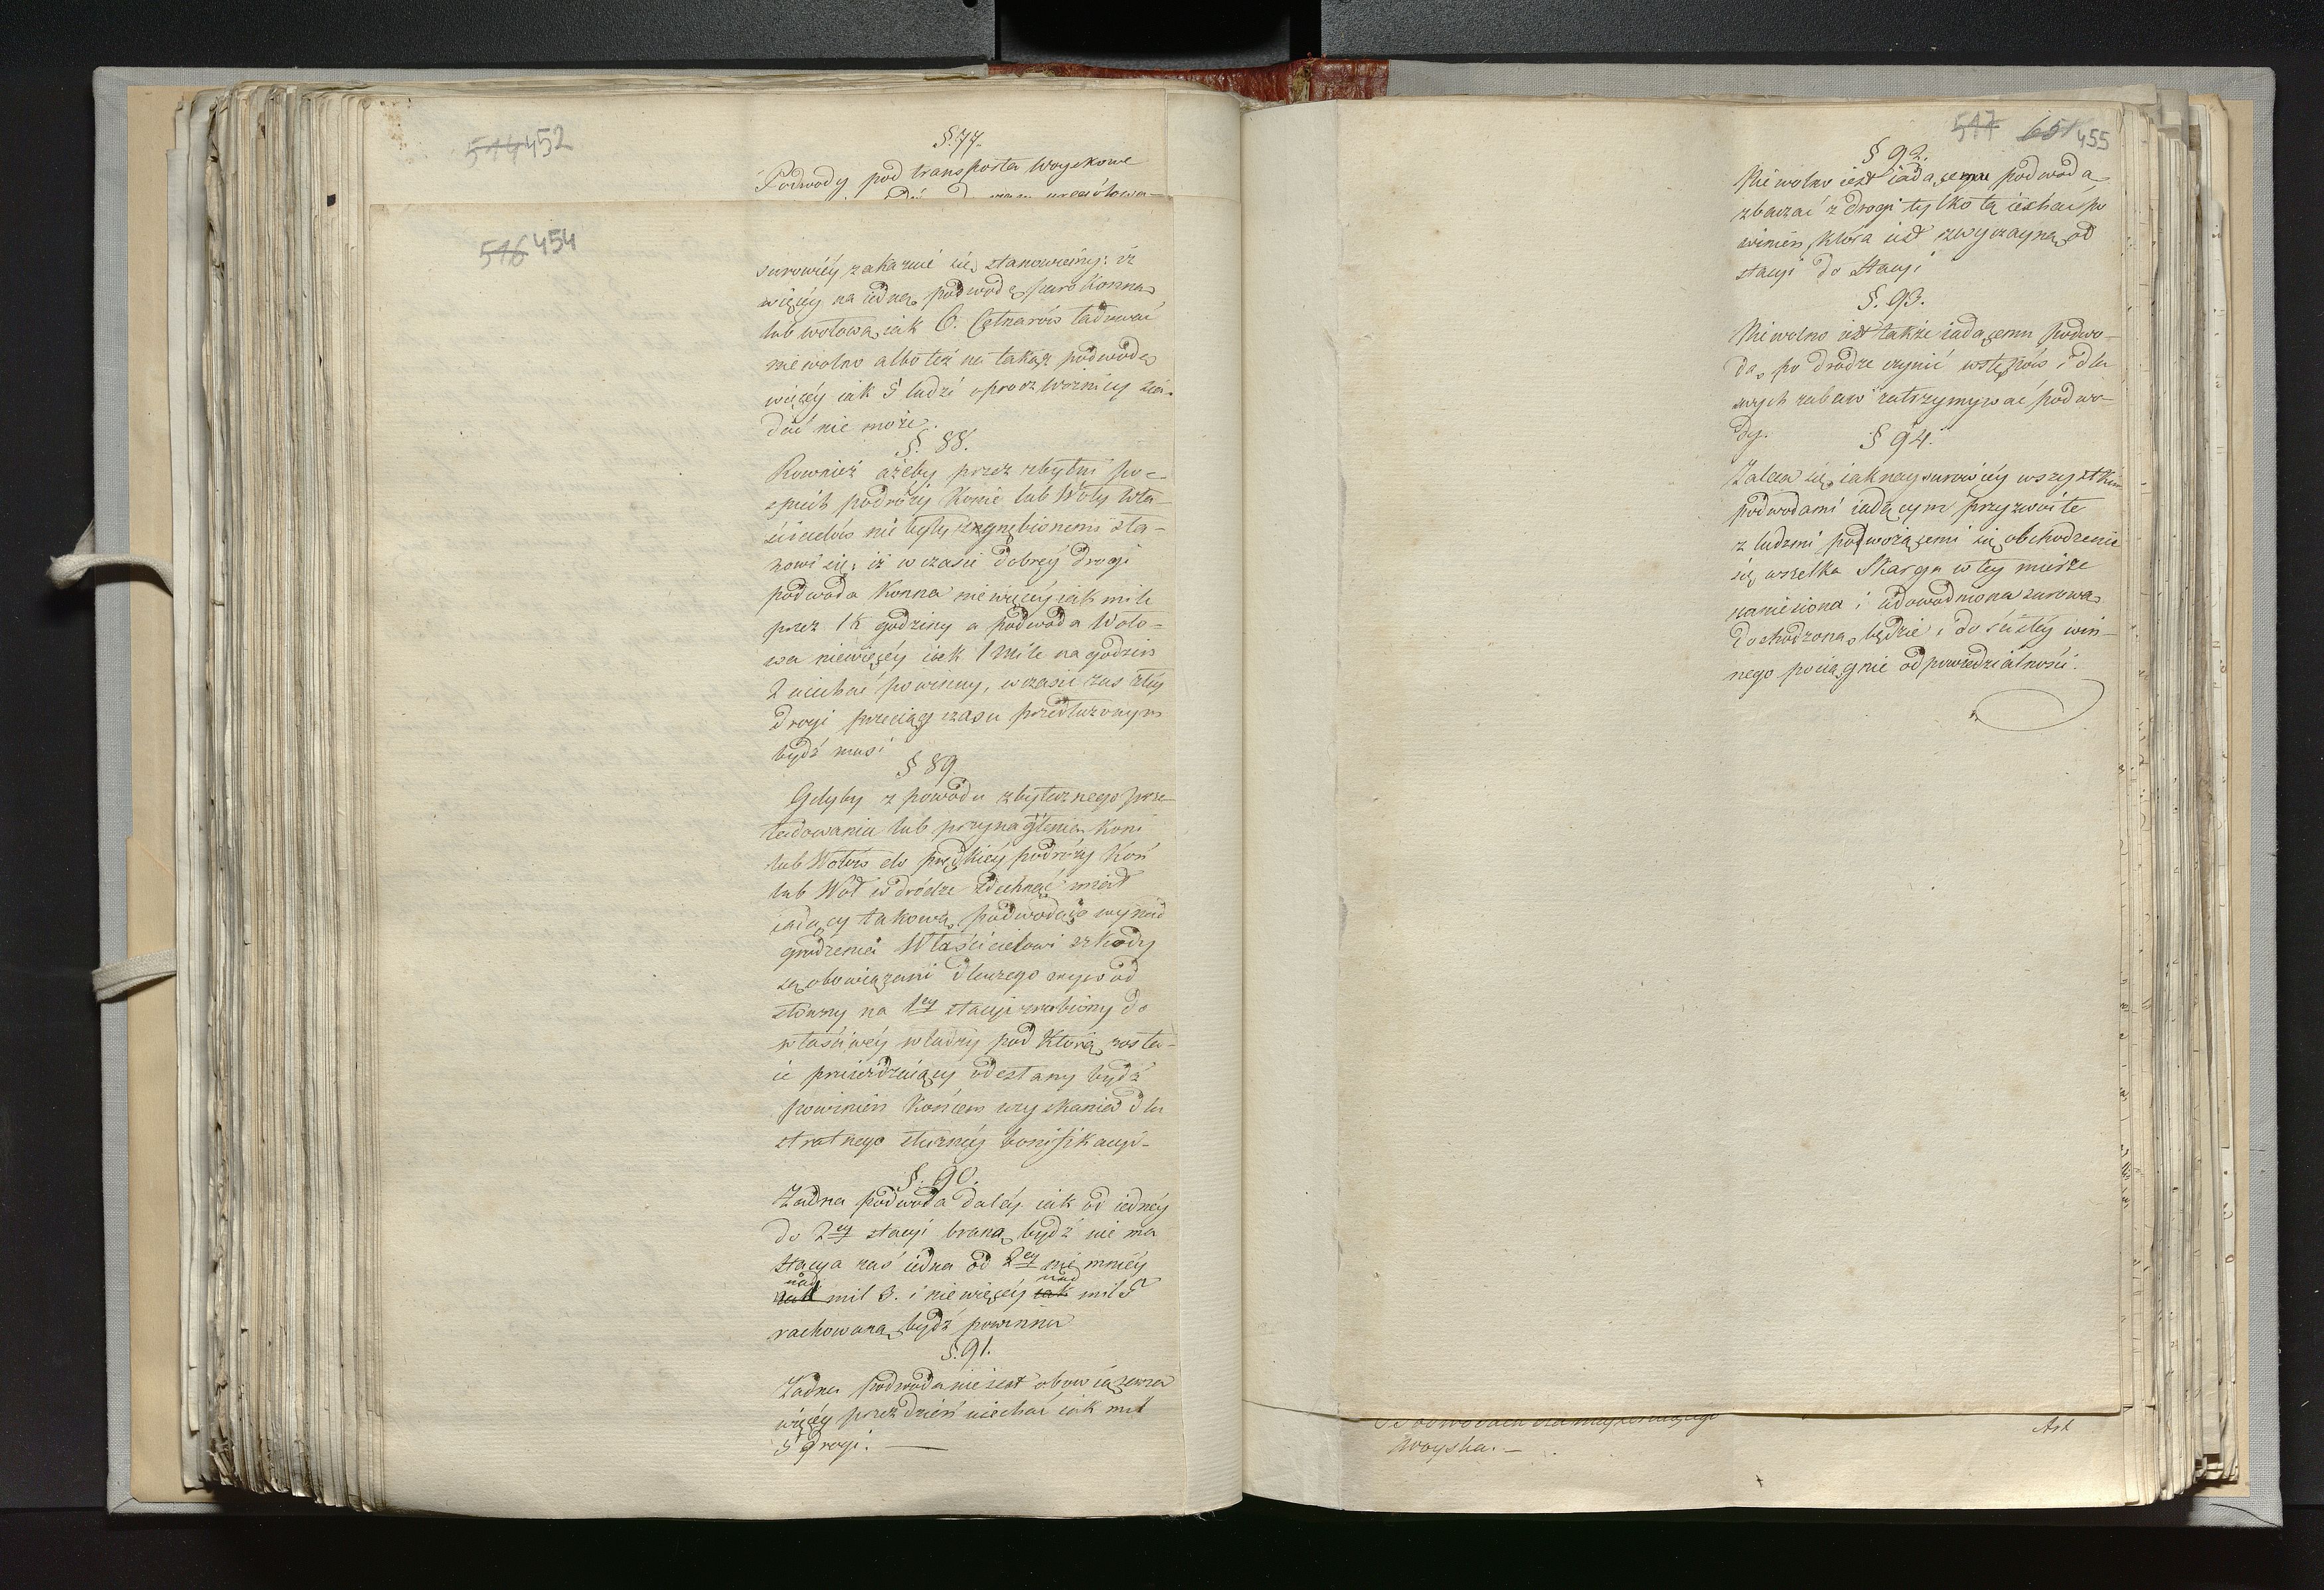 514 452
§. 77.
Podwody pod transporta Woyskowe
516 454
surowiey zakazuie się, stanowiemy: iż
więcey na iedną podwodę paro Konną
lub wołową iak 6. Cetnarów ładować
nie wolno albo też na takąż podwodę
więcey iak 5 ludzi oprocz Woznicy sia-
dać nie może.
§. 88.
Rownież ażeby przez zbytni po-
spiech podróży Konie lub Woły Wła-
ścicielów nie były zagnębionemi sta-
nowi się, iż w czasie dobrey drogi
podwoda Konna nie więcey iak mile
przez 1½ godziny a podwoda Woło-
wa niewięcey iak 1 Mile na godzin
2 uiechać powinny, w czasie zas złey
drogi przeciąg czasu przedłużonym
bydź musi
§ 89.
Gdyby z powodu zbytecznego prze-
ładowania lub przynaglenia Koni
lub Wołów do prędkiey podróży Koń
lub Woł w drodze zdechnąć miał
iadący takową podwodą do wynad
grodzenia Właścicielowi szkody
są obowiązani dla czego wywod
słowny na 1ey stacyi zrobiony do
właściwey władzy pod Którą zosta-
ie przeieżdzaiący odesłany bydź
powinien Końcem uzyskania dla
stratnego słuszney bonifikacyi-
§. 90.
Żadna podwoda daley iak od iedney
do 2ey stacyi braną bydź nie ma
stacya zaś iedna od 2ey nie mniey
nad
nad
mil 3. i nie więcey iak mil 5
rachowaną bydź powinna
§. 91.
Żadna podwoda nie iest obowiązana
więcey przez dzień uiechać iak mil
5 drogi. —
517 651 455
§ 92.
Nie wolno iest iadącemu podwodą
zbaczać z drogi tylko tą iechać po
winien, która iest zwyczayną od
stacyi do Stacyi
§. 93.
Nie wolno iest także iadącemu podwo-
dą, po drodze czynić wstępów i dla
swych zabaw zatrzymywać podwo-
dy.
§ 94.
Zaleca się iak naysurowiey wszystkim
podwodami iadącym przyzwoite
z ludzmi podwożącemi się obchodzenie
się, wszelka Skarga w tey mierze
zaniesiona i udowodniona surowo
dochodzoną będzie, i do ścisłey win-
nego pociągnie odpowiedzialności.
Woyska. —
Art